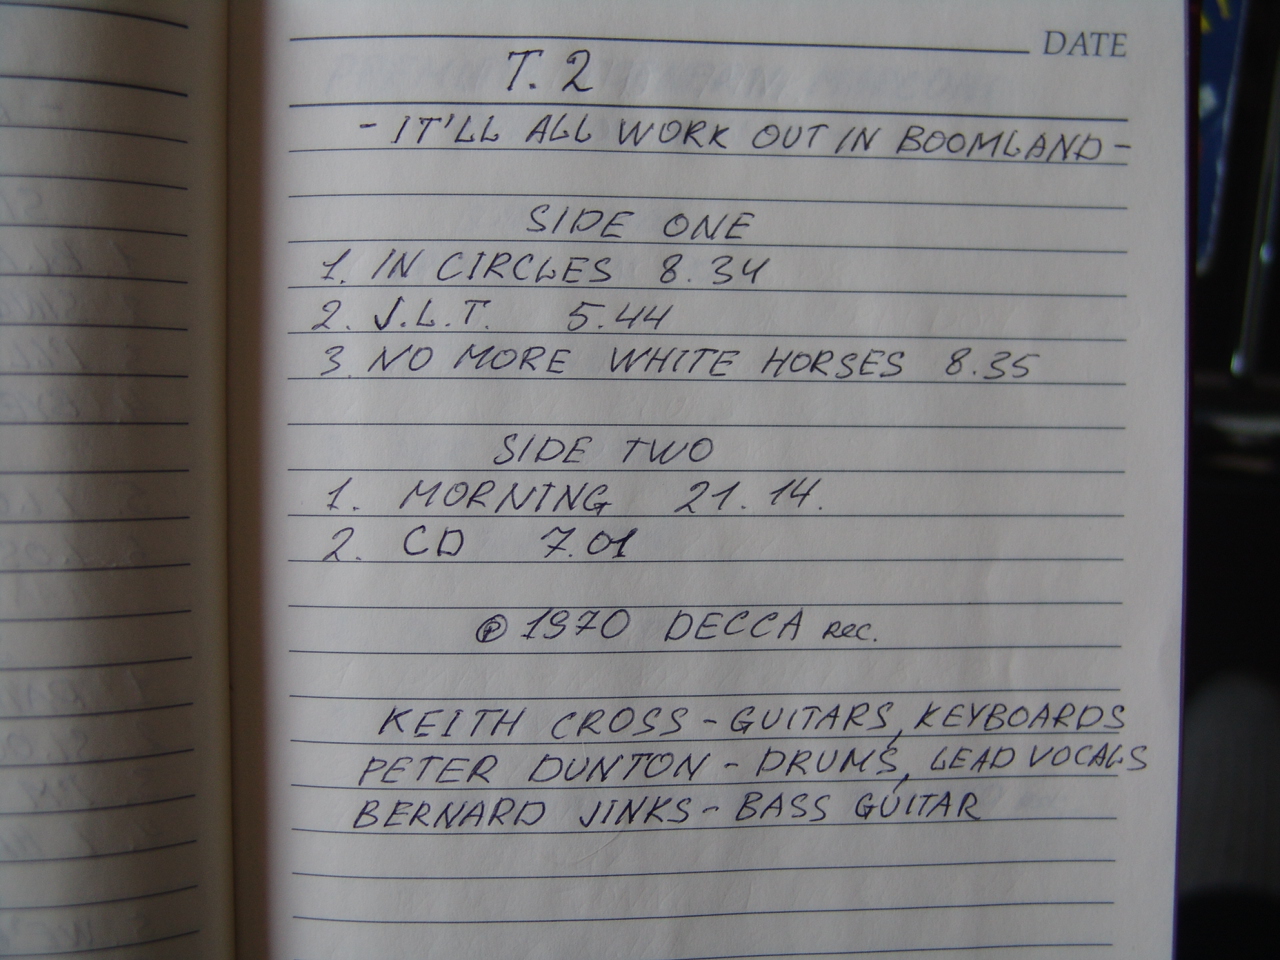 DATE
T. 2
- IT'LL ALL WORK OUT IN BOOMLAND -
SIDE ONE
1. IN CIRCLES 8.34
2. J.L.T. 5.44
3. NO MORE WHITE HORSES 8.35
SIDE TWO
1. MORNING 21.14.
2. CD 7.01
℗ 1970 DECCA REC.
KEITH CROSS - GUITARS, KEYBOARDS
PETER DUNTON - DRUMS, LEAD VOCALS
BERNARD JINKS - BASS GUITAR